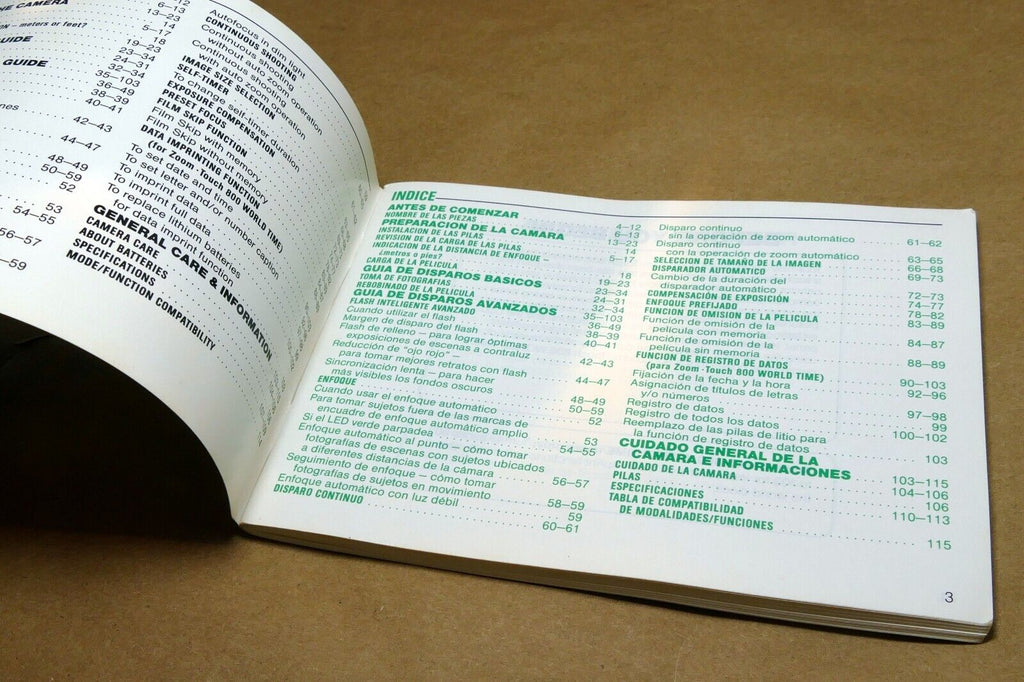 HE CAMERA
ION – meters or feet?
UIDE
GUIDE
nes
12
6–13
13–23
14
5–17
18
19–23
23–34
24–31
32–34
35–103
36–49
38–39
40–41
42–43
44–47
48–49
50–59
52
53
54–55
56–57
–59
Autofocus in dim light
CONTINUOUS SHOOTING
Continuous shooting
without auto zoom operation
Continuous shooting
with auto zoom operation
IMAGE SIZE SELECTION
SELF-TIMER
To change self-timer duration
EXPOSURE COMPENSATION
PRESET FOCUS
FILM SKIP FUNCTION
Film Skip with memory
Film Skip without memory
DATA IMPRINTING FUNCTION
(for Zoom·Touch 800 WORLD TIME)
To set date and time
To set letter and/or number caption
To imprint data
To imprint full data
To replace lithium batteries
for data imprint function
GENERAL CARE & INFORMATION
CAMERA CARE
ABOUT BATTERIES
SPECIFICATIONS
MODE/FUNCTION COMPATIBILITY
INDICE
ANTES DE COMENZAR 4–12
NOMBRE DE LAS PIEZAS 6–13
PREPARACION DE LA CAMARA 13–23
INSTALACION DE LAS PILAS 14
REVISION DE LA CARGA DE LAS PILAS 5–17
INDICACION DE LA DISTANCIA DE ENFOQUE –
¿metros o pies? 18
CARGA DE LA PELICULA 19–23
GUIA DE DISPAROS BASICOS 23–34
TOMA DE FOTOGRAFIAS 24–31
REBOBINADO DE LA PELICULA 32–34
GUIA DE DISPAROS AVANZADOS 35–103
FLASH INTELIGENTE AVANZADO 36–49
Cuando utilizar el flash 38–39
Margen de disparo del flash 40–41
Flash de relleno – para lograr óptimas
exposiciones de escenas a contraluz 42–43
Reducción de "ojo rojo" –
para tomar mejores retratos con flash 44–47
Sincronización lenta – para hacer
más visibles los fondos oscuros 48–49
ENFOQUE 50–59
Cuando usar el enfoque automático 52
Para tomar sujetos fuera de las marcas de
encuadre de enfoque automático amplio 53
Si el LED verde parpadea 54–55
Enfoque automático al punto – cómo tomar
fotografías de escenas con sujetos ubicados
a diferentes distancias de la cámara 56–57
Seguimiento de enfoque – cómo tomar
fotografías de sujetos en movimiento 58–59
Enfoque automático con luz débil 59
DISPARO CONTINUO 60–61
Disparo continuo
sin la operación de zoom automático 61–62
Disparo continuo
con la operación de zoom automático 63–65
SELECCION DE TAMAÑO DE LA IMAGEN 66–68
DISPARADOR AUTOMATICO 69–73
Cambio de la duración del
disparador automático 72–73
COMPENSACIÓN DE EXPOSICIÓN 74–77
ENFOQUE PREFIJADO 78–82
FUNCION DE OMISION DE LA PELICULA 83–89
Función de omisión de la
película con memoria 84–87
Función de omisión de la
película sin memoria 88–89
FUNCION DE REGISTRO DE DATOS
(para Zoom·Touch 800 WORLD TIME) 90–103
Fijación de la fecha y la hora 92–96
Asignación de títulos de letras
y/o números 97–98
Registro de datos 99
Registro de todos los datos 100–102
Reemplazo de las pilas de litio para
la función de registro de datos 103
CUIDADO GENERAL DE LA
CAMARA E INFORMACIONES 103–115
CUIDADO DE LA CAMARA 104–106
PILAS 106
ESPECIFICACIONES 110–113
TABLA DE COMPATIBILIDAD
DE MODALIDADES/FUNCIONES 115
3